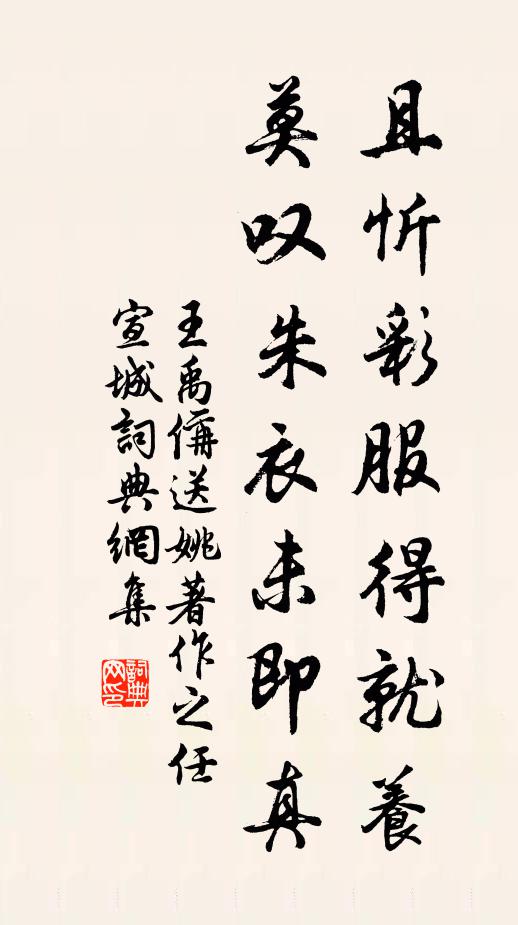 且忻彩服得就養
莫叹朱衣未即真
王禹偁送姚著作之任
宣城詞典網集
詞典网印